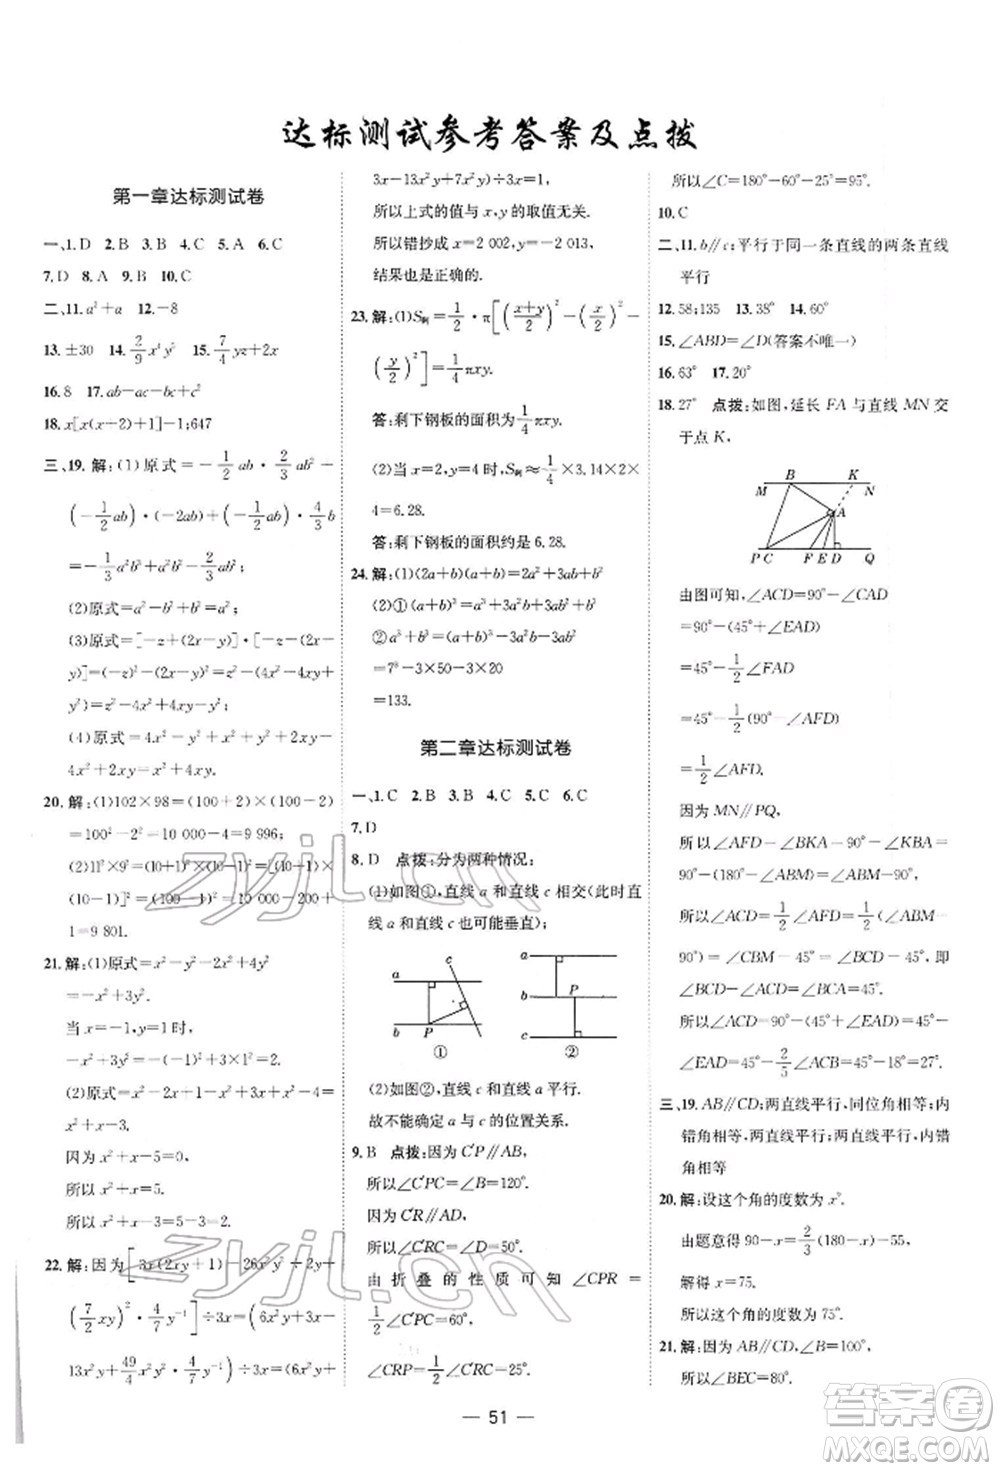 达标测试参考答案及点拨
第一章达标测试卷
一、1. D 2. B 3. B 4. C 5. A 6. C
7. D 8. A 9. B 10. C
二、11. a²+a 12. -8
13. ±30 14. 2/9 x⁴y² 15. 7/4 yz+2x
16. 8 17. ab-ac-bc+c²
18. x[x(x-2)+1]-1;647
三、19. 解:(1)原式=-1/2 ab·2/3 ab²-
(-1/2 ab)·(-2ab)+(-1/2 ab)·4/3 b
=-1/3 a²b³+a²b²-2/3 ab²;
(2)原式=a²-b²+b²=a²;
(3)原式=[-z+(2x-y)]·[-z-(2x-
y)]=z²-(2x-y)²=z²-(4x²-
4xy+y²)=z²-4x²+4xy-y²;
(4)原式=4x²-y²-(4x²-4xy+
y²)=4xy-2y².
20. 解:(1)102×98=(100+2)×(100-2)
=100²-2²=10 000-4=9 996;
(2)11²×9²=(10+1)²×(10-1)²=[(10+1)×
(10-1)]²=(100-1)²=10 000-200+
1=9 801.
21. 解:(1)原式=x²-y²-2x²+4y²
=-x²+3y².
当x=-1,y=1时,
-x²+3y²=-(-1)²+3×1²=2.
(2)原式=x²-2x+1-x²+3x+x²-4=
x²+x-3.
因为x²+x-5=0,
所以x²+x=5.
所以x²+x-3=5-3=2.
22. 解:因为[3x(2xy+1)-26x²y²÷2y+
(7/2 xy)²·4/7 y⁻¹]÷3x=(6x²y+3x-
13x²y+49/4 x²y²·4/7 y⁻¹)÷3x=(6x²y+
3x-13x²y+7x²y)÷3x=1,
所以上式的值与x,y的取值无关.
所以错抄成x=2 002,y=-2 013,
结果也是正确的.
23. 解:(1)S剩=1/2·π[((x+y)/2)²-(x/2)²-
(y/2)²]=1/4 πxy.
答:剩下钢板的面积为1/4 πxy.
(2)当x=2,y=4时,S剩≈1/4×3.14×2×
4=6.28.
答:剩下钢板的面积约是6.28.
24. 解:(1)(2a+b)(a+b)=2a²+3ab+b²
(2)①(a+b)³=a³+3a²b+3ab²+b³
②a³+b³=(a+b)³-3a²b-3ab²
=7³-3×50-3×20
=133.
第二章达标测试卷
一、1. C 2. B 3. B 4. C 5. C 6. C
7. D
8. D 点拨:分为两种情况:
(1)如图①,直线a和直线c相交(此时直
线a和直线c也可能垂直);
a
b
c
P
①
a
b
c
P
②
(2)如图②,直线c和直线a平行.
故不能确定a与c的位置关系.
9. B 点拨:因为C′P∥AB,
所以∠C′PC=∠B=120°.
因为C′R∥AD,
所以∠C′RC=∠D=50°.
由折叠的性质可知∠CPR=
1/2∠C′PC=60°,
∠CRP=1/2∠C′RC=25°.
所以∠C=180°-60°-25°=95°.
10. C
二、11. b∥c;平行于同一条直线的两条直线
平行
12. 58;135 13. 38° 14. 60°
15. ∠ABD=∠D(答案不唯一)
16. 63° 17. 20°
18. 27° 点拨:如图,延长FA与直线MN交
于点K,
M B K N
A
P C F E D Q
由图可知,∠ACD=90°-∠CAD
=90°-(45°+∠EAD)
=45°-1/2∠FAD
=45°-1/2(90°-∠AFD)
=1/2∠AFD.
因为MN∥PQ,
所以∠AFD=∠BKA=90°-∠KBA
=90°-(180°-∠ABM)=∠ABM-90°.
所以∠ACD=1/2∠AFD=1/2(∠ABM-
90°)=∠CBM-45°=∠BCD-45°,即
∠BCD-∠ACD=∠BCA=45°.
所以∠ACD=90°-(45°+∠EAD)=45°
-∠EAD=45°-2/5∠ACB=45°-18°=27°.
三、19. AB∥CD;两直线平行,同位角相等;内
错角相等,两直线平行;两直线平行,内错
角相等
20. 解:设这个角的度数为x°.
由题意得90-x=2/3(180-x)-55,
解得x=75.
所以这个角的度数为75°.
21. 解:因为AB∥CD,∠B=100°,
所以∠BEC=80°.
51
zyjl.cn
zyjl.cn
答案圈
MXQE.COM